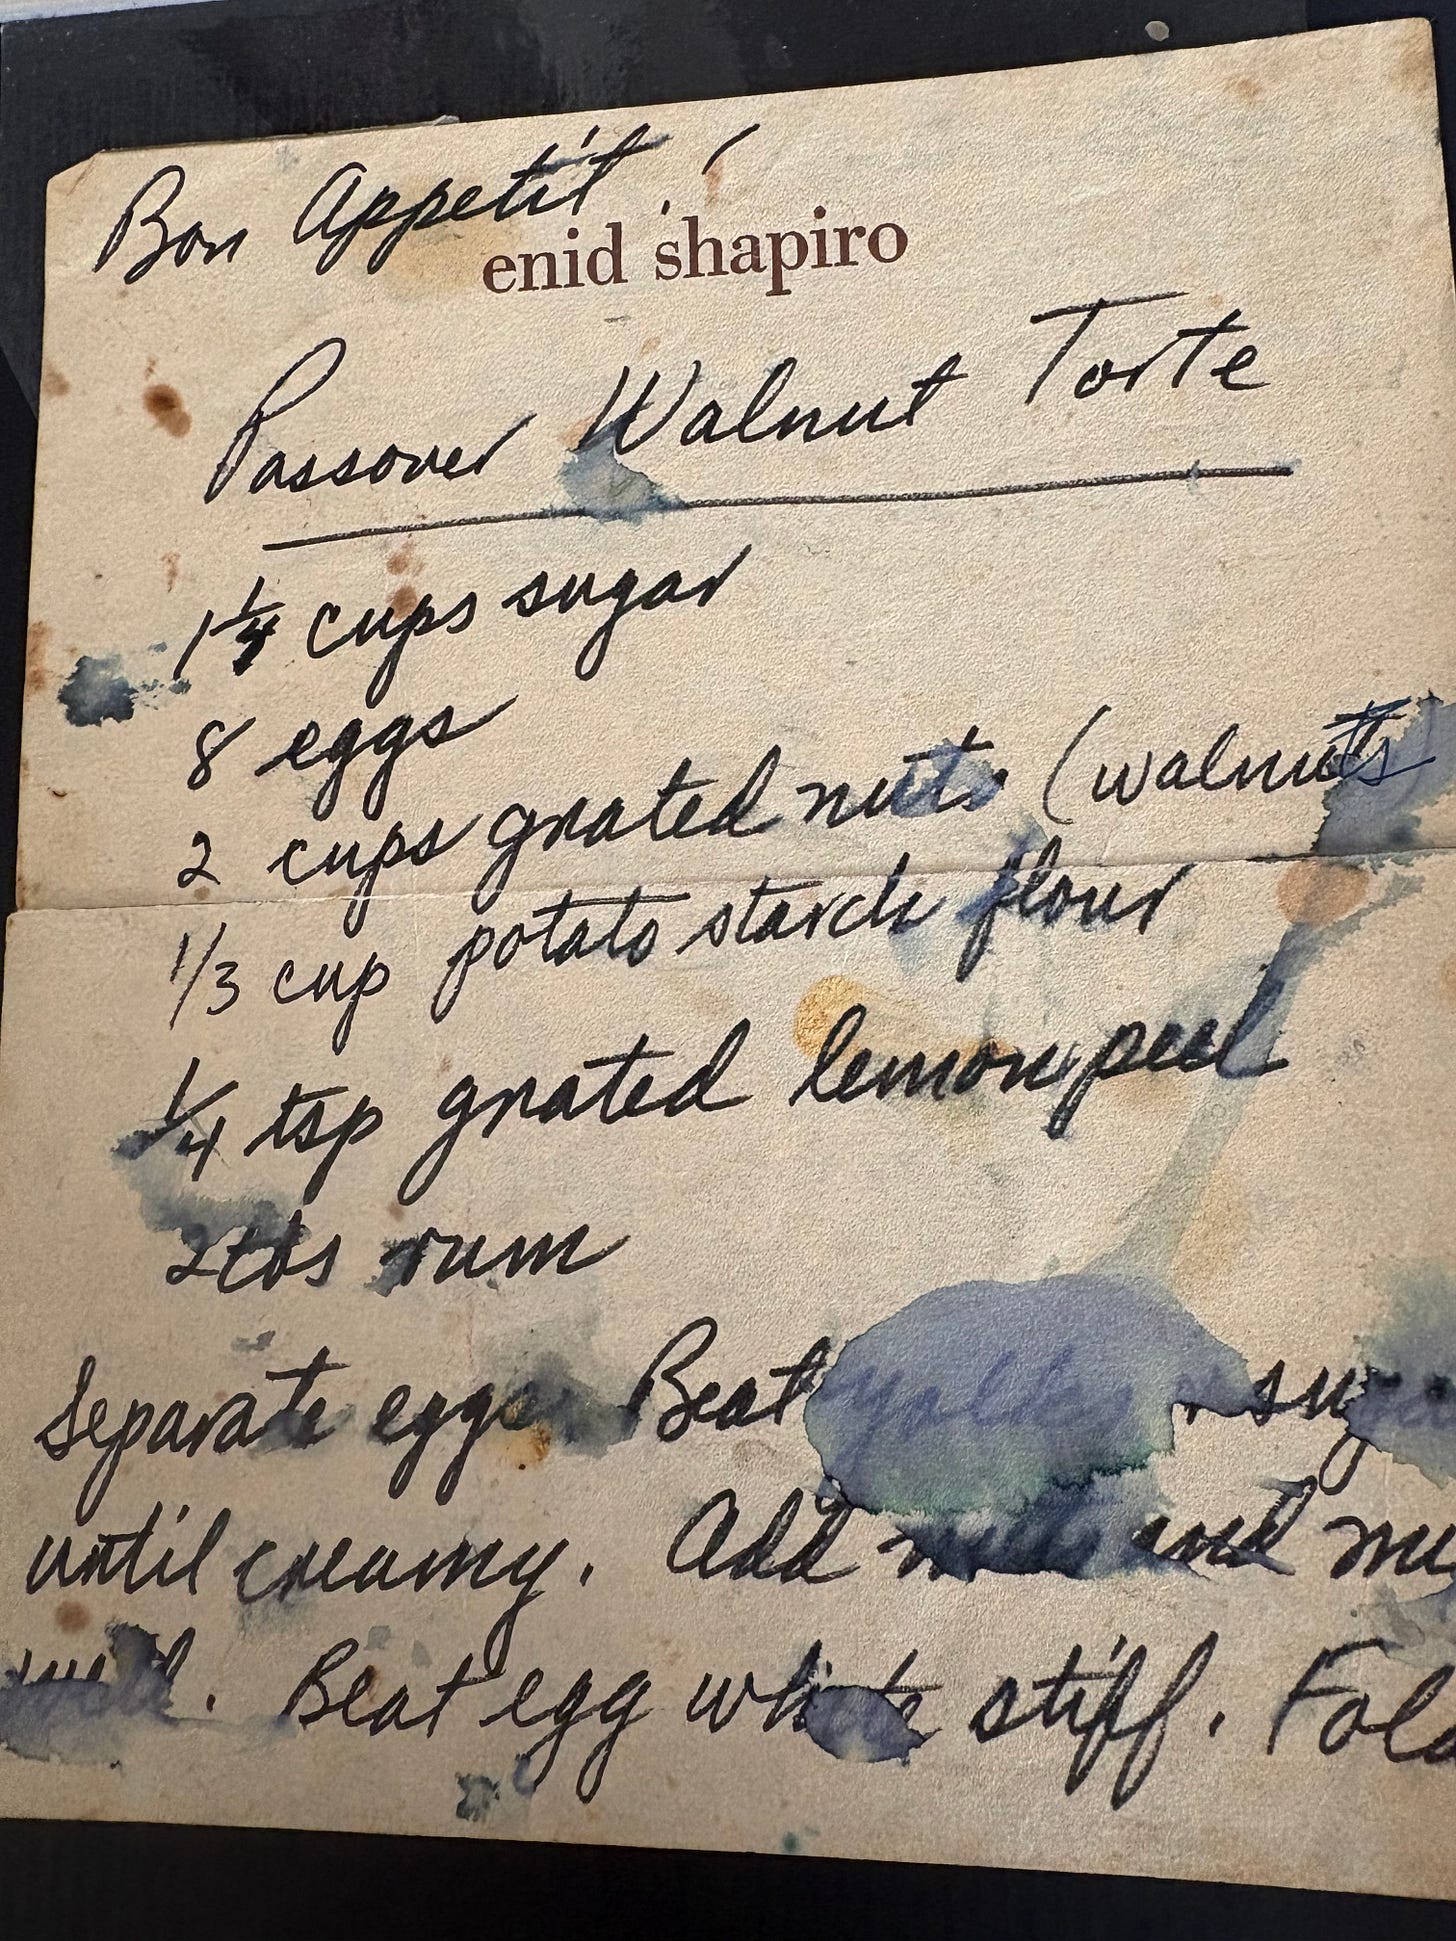 Bon Appetit!
enid shapiro
Passover Walnut Torte
1 1/4 cups sugar
8 eggs
2 cups grated nuts (walnuts)
1/3 cup potato starch flour
1/4 tsp grated lemon peel
2 tbs rum
Separate eggs Beat yolks
until creamy. Add nuts and
well. Beat egg white stiff. Fold